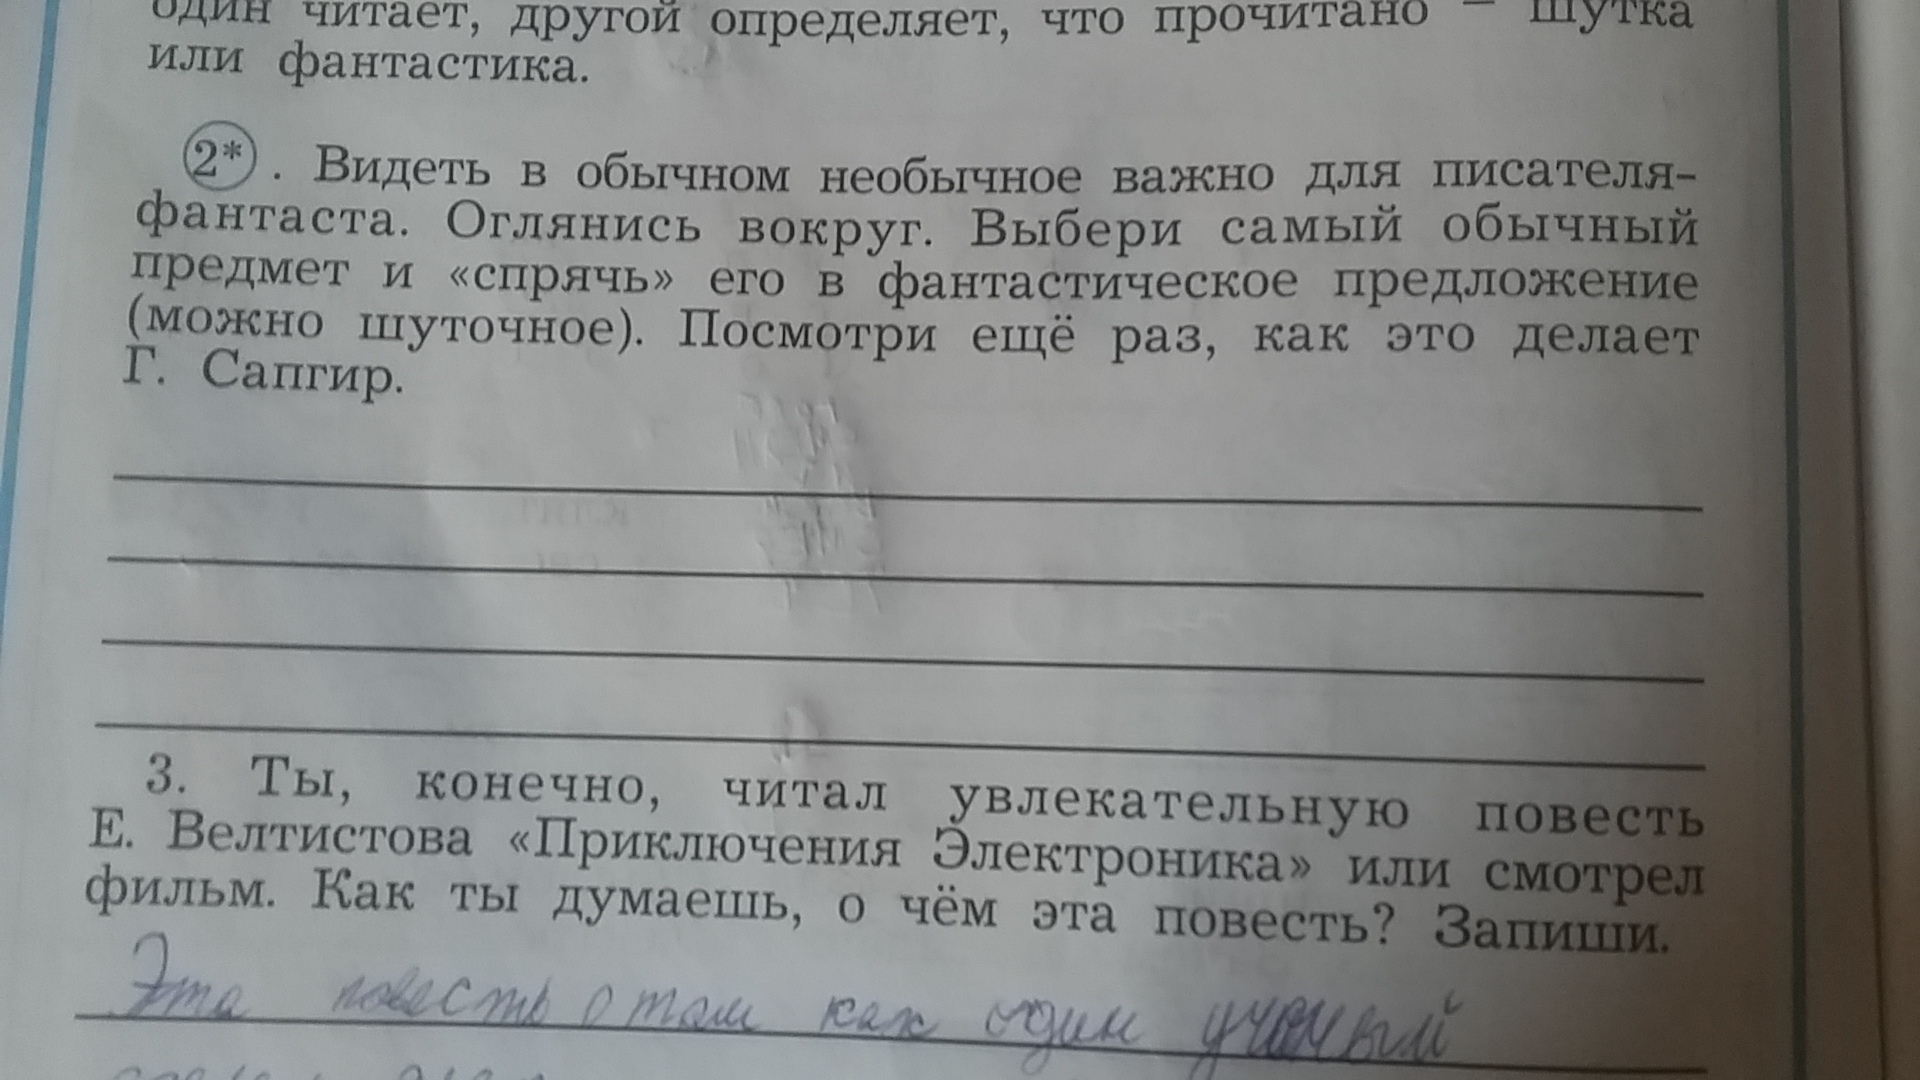 один читает, другой определяет, что прочитано – шутка
или фантастика.
2*. Видеть в обычном необычное важно для писателя-
фантаста. Оглянись вокруг. Выбери самый обычный
предмет и «спрячь» его в фантастическое предложение
(можно шуточное). Посмотри ещё раз, как это делает
Г. Сапгир.
3. Ты, конечно, читал увлекательную повесть
Е. Велтистова «Приключения Электроника» или смотрел
фильм. Как ты думаешь, о чём эта повесть? Запиши.
Эта повесть о том как один учёный